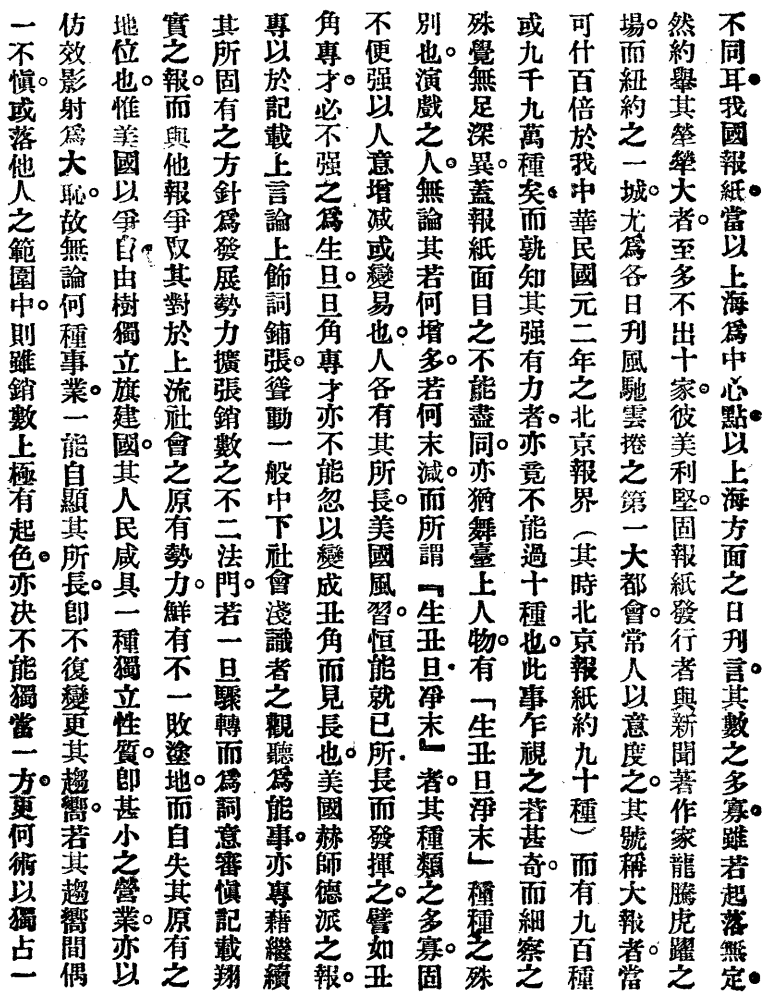 不同耳我國報紙當以上海爲中心點以上海方面之日刊言其數之多寡雖若起落無定
然約舉其犖犖大者。至多不出十家。彼美利堅。固報紙發行者與新聞著作家龍騰虎躍之
場。而紐約之一城。尤爲各日刋風馳雲捲之第一大都會。常人以意度之。其號稱大報者。當
可什百倍於我中華民國元二年之北京報界（其時北京報紙約九十種）而有九百種
或九千九萬種矣。而孰知其强有力者。亦竟不能過十種也。此事乍視之若甚奇。而細察之
殊覺無足深異。蓋報紙面目之不能盡同。亦猶舞臺上人物。有「生丑旦淨末」種種之殊
別也。演戲之人。無論其若何增多。若何末減。而所謂『生丑旦淨末』者。其種類之多寡。固
不便强以人意增减或變易也。人各有其所長。美國風習。恒能就已所長而發揮之。譬如丑
角專才。必不强之爲生旦。旦角專才亦不能忽以變成丑角而見長也。美國赫師德派之報。
專以於記載上言論上飾詞鋪張。聳動一般中下社會淺識者之觀聽爲能事。亦專藉繼續
其所固有之方針爲發展勢力擴張銷數之不二法門。若一旦驟轉而爲詞意審愼記載翔
實之報。而與他報爭取其對於上流社會之原有勢力。鮮有不一敗塗地。而自失其原有之
地位也。惟美國以爭自由樹獨立旗建國。其人民咸具一種獨立性質。卽甚小之營業。亦以
仿效影射爲大恥。故無論何種事業。一能自顯其所長。卽不復變更其趨嚮。若其趨嚮間偶
一不愼。或落他人之範圍中。則雖銷數上極有起色。亦决不能獨當一方。更何術以獨占一